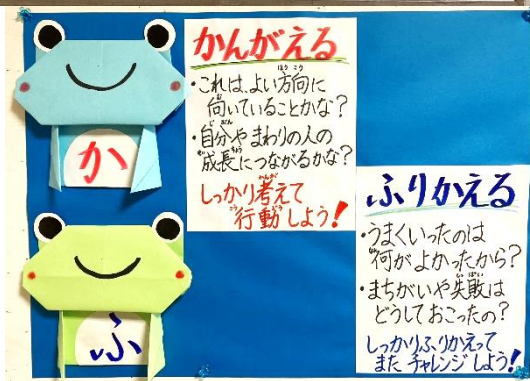 か
かんがえる
・これは、よい方向に
向いていることかな？
・自分やまわりの人の
成長につながるかな？
しっかり考えて
行動しよう！
ふ
ふりかえる
・うまくいったのは
何がよかったから？
・まちがいや失敗は
どうしておこったの？
しっかりふりかえって
また チャレンジしよう！